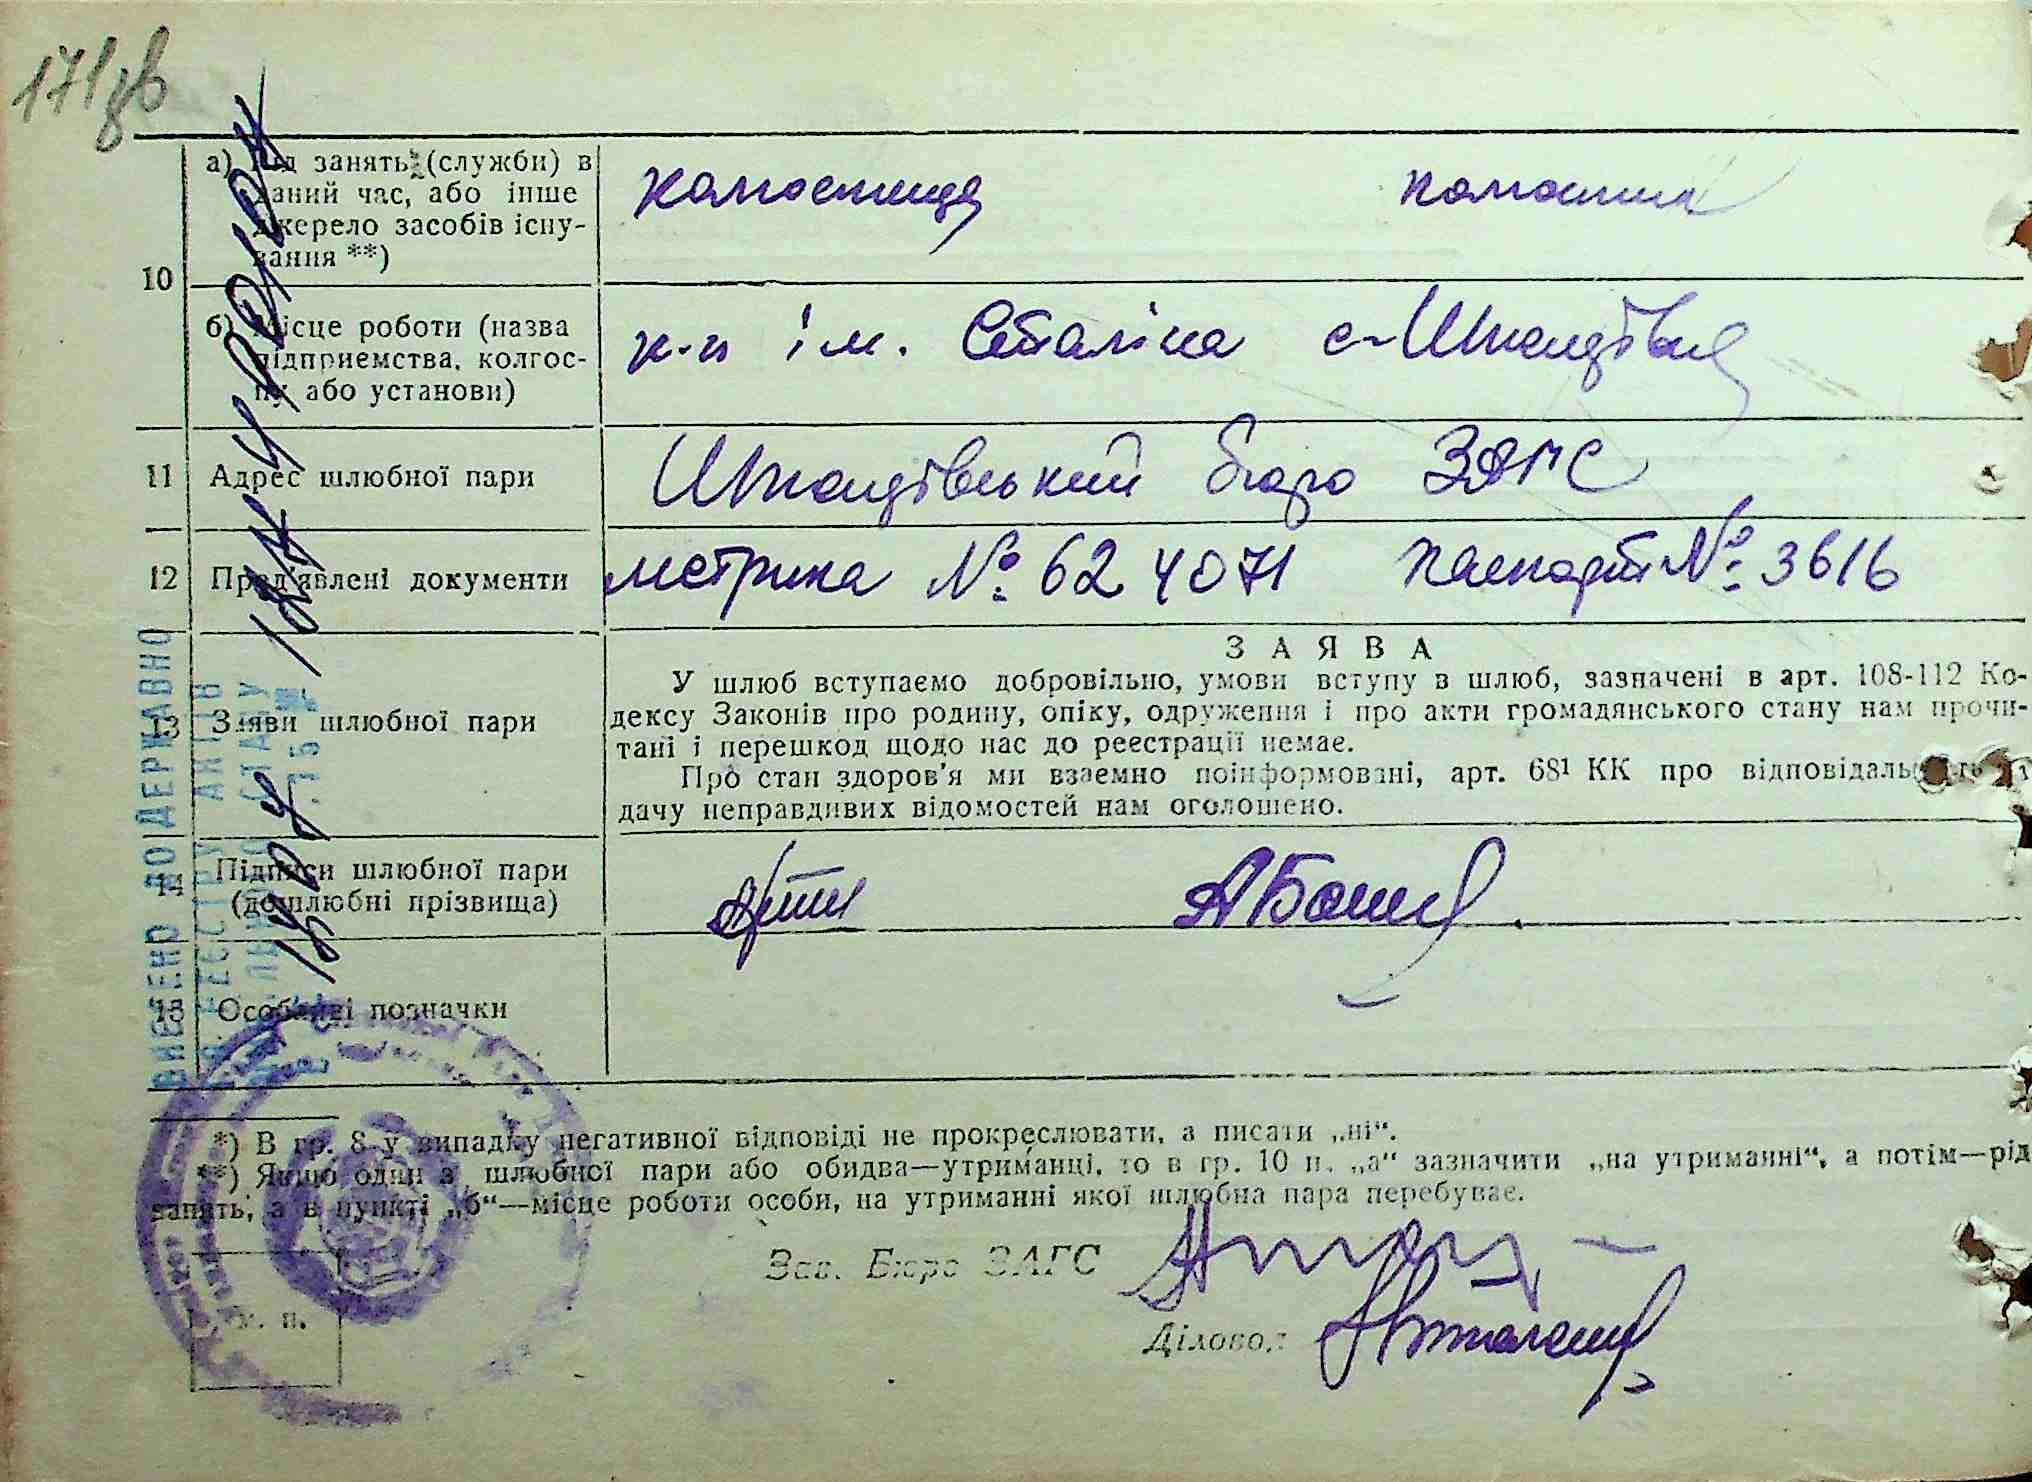 171зв
10
а) Рід занять (служби) в
даний час, або інше
джерело засобів існу-
вання **)
колгоспниця колгоспник
б) Місце роботи (назва
підприємства, колгос-
пу або установи)
к-п ім. Сталіна с-Шкандівка
11 Адрес шлюбної пари
бюро ЗАГС
12 Пред'явлені документи
метрика № 624071 паспорт № 3616
13 Заяви шлюбної пари
ЗАЯВА
У шлюб вступаємо добровільно, умови вступу в шлюб, зазначені в арт. 108-112 Ко-
дексу Законів про родину, опіку, одруження і про акти громадянського стану нам прочи-
тані і перешкод щодо нас до реєстрації немає.
Про стан здоров'я ми взаємно поінформовані, арт. 68¹ КК про відповідальність
дачу неправдивих відомостей нам оголошено.
14 Підписи шлюбної пари
(дошлюбні прізвища)
15 Особливі позначки
ВНЕСЕНО ДО ДЕРЖАВНО
РЕЄСТРУ АКТІВ
СТАНУ
*) В гр. 8 у випадку негативної відповіді не прокреслювати, а писати „ні“.
**) Якщо один з шлюбної пари або обидва—утриманці, то в гр. 10 п. „а“ зазначити „на утриманні“, а потім—рід
занять, а в пункті „б“—місце роботи особи, на утриманні якої шлюбна пара перебуває.
Зав. Бюро ЗАГС
Діловод:
м. п.